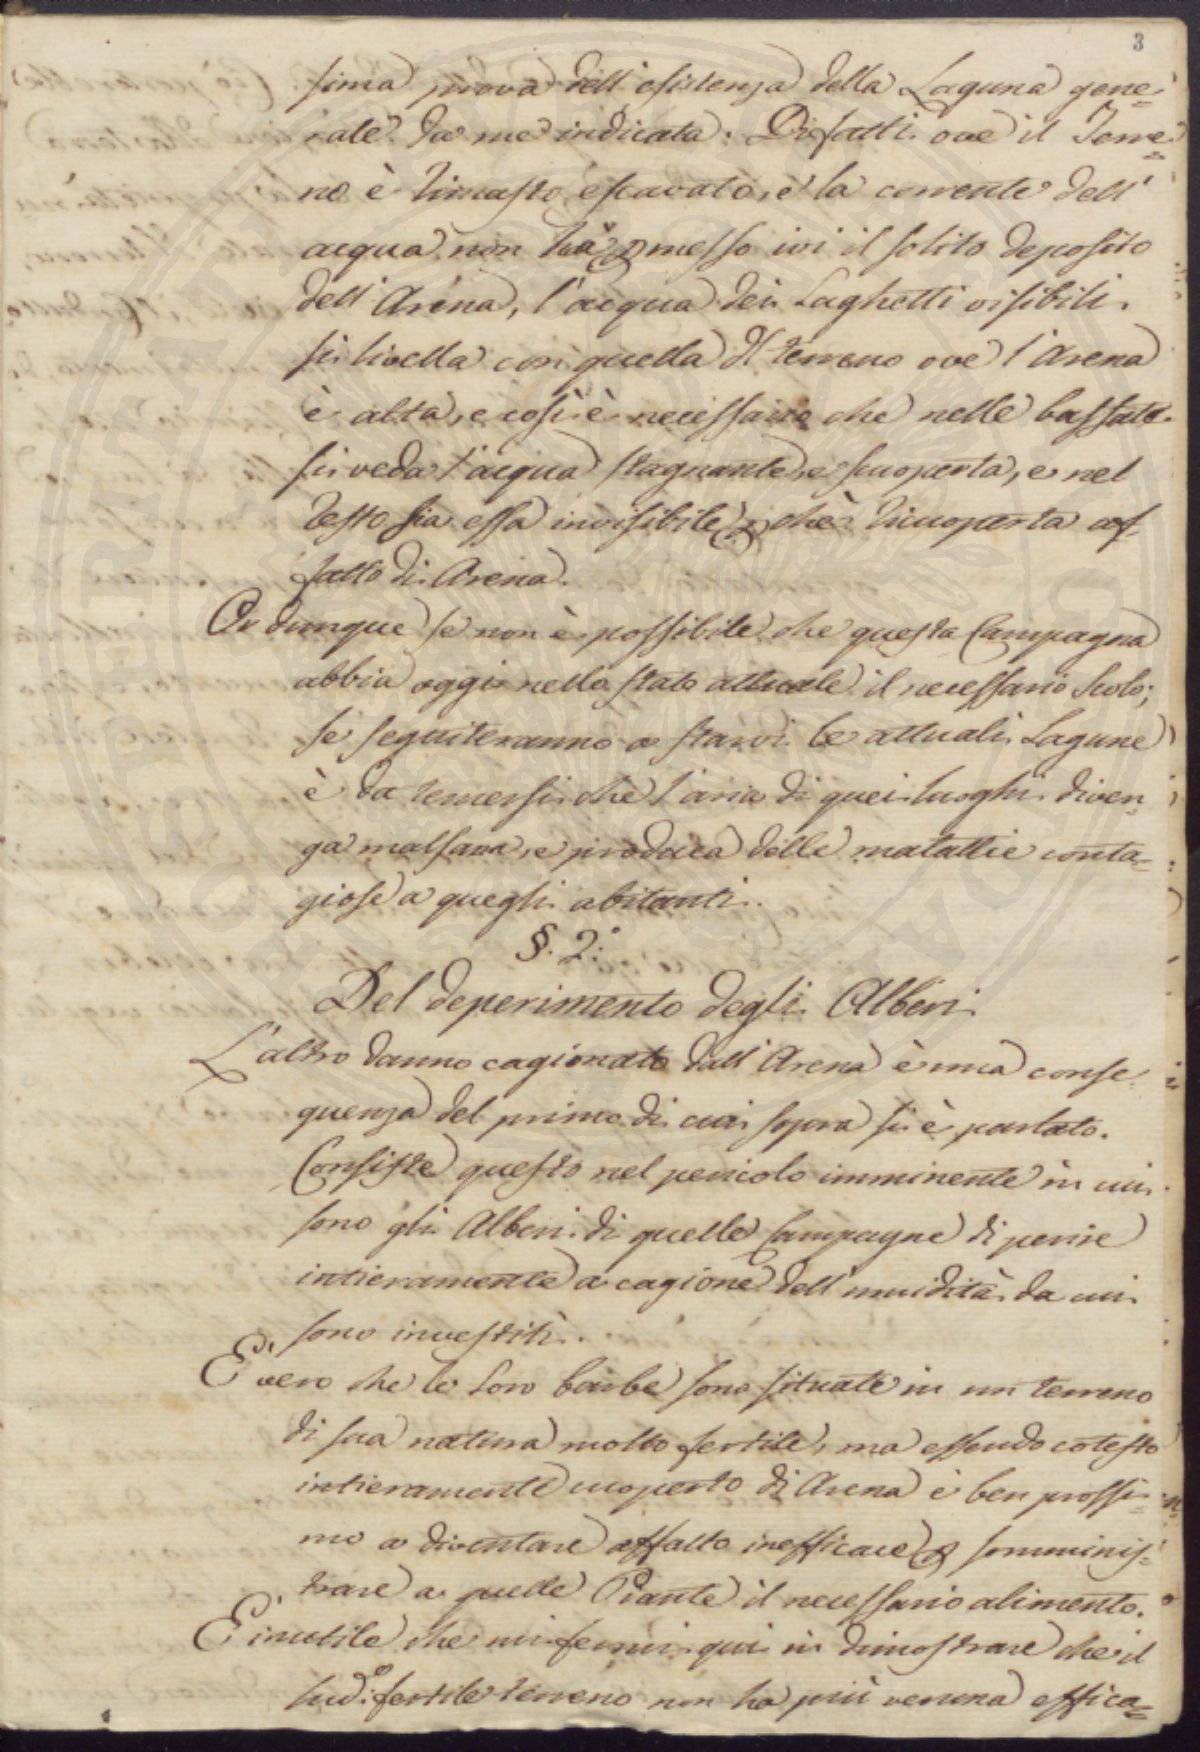 3
sima prova dell'esistenza della Laguna gene=
rale da me indicata. Difatti ove il Terre=
no è rimasto escavato, e la corrente dell'
acqua non ha messo ivi il solito deposito
dell'Arena, l'acqua dei Laghetti visibili
si livella con quella del terreno ove l'Arena
è alta, e così è necessario che nelle bassate
si veda l'acqua stagnante, e scuoperta, e nel
resto sia essa invisibile perchè ricuoperta af=
fatto di Arena.
Or dunque se non è possibile che questa Campagna
abbia oggi nello stato attuale il necessario scolo;
se seguiteranno a starvi le attuali Lagune
è da temersi che l'aria di quei luoghi diven=
ga malsana, e produca delle malattie conta=
giose a quegli abitanti.
§. 2.°
Del deperimento degli Alberi
L'altro danno cagionato dall'Arena è una conse=
quenza del primo di cui sopra si è parlato.
Consiste questo nel pericolo imminente in cui
sono gli Alberi di quelle Campagne di perire
intieramente a cagione dell'umidità da cui
sono investiti.
E' vero che le loro barbe sono situate in un terreno
di sua natura molto fertile, ma essendo cotesto
intieramente cuoperto di Arena è ben prossi=
mo a diventare affatto inefficace per somminis=
trare a quelle Piante il necessario alimento.
E' inutile che mi fermi qui in dimostrare che il
sud.° fertile terreno non ha più veruna effica=